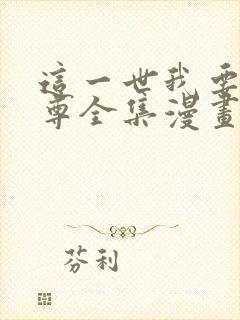 這一世我要
尊全集漫畫
芬利